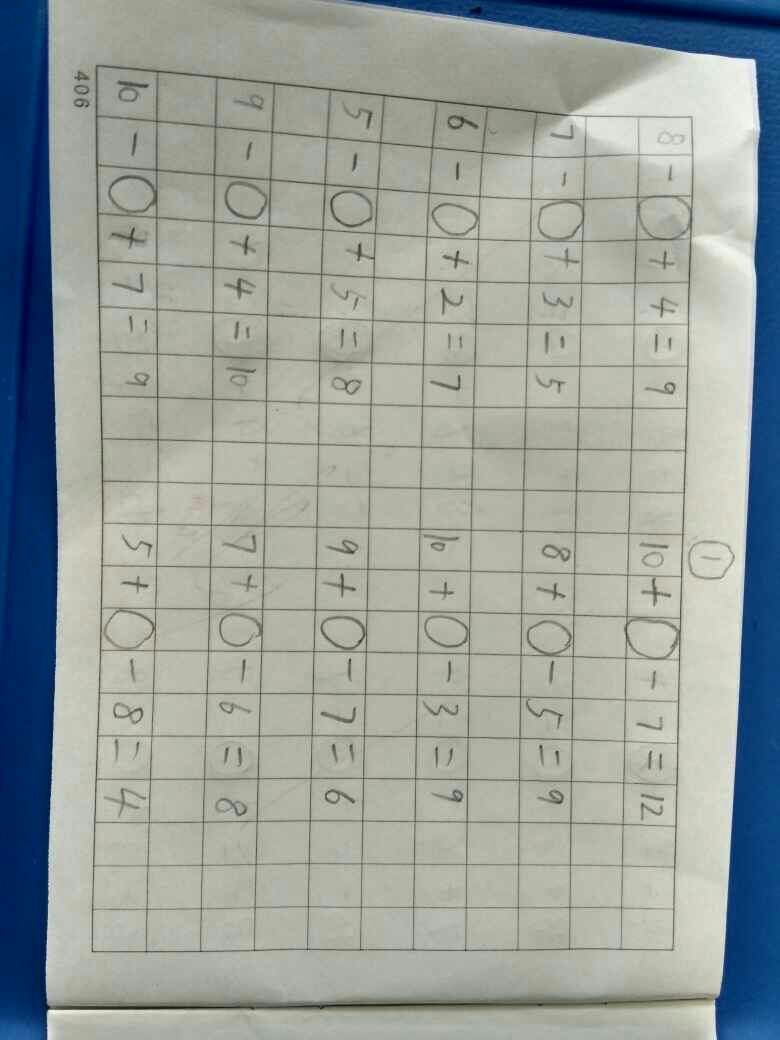 ①
8-○+4=9 10+○-7=12
7-○+3=5 8+○-5=9
6-○+2=7 10+○-3=9
5-○+5=8 9+○-7=6
9-○+4=10 7+○-6=8
10-○+7=9 5+○-8=4
406